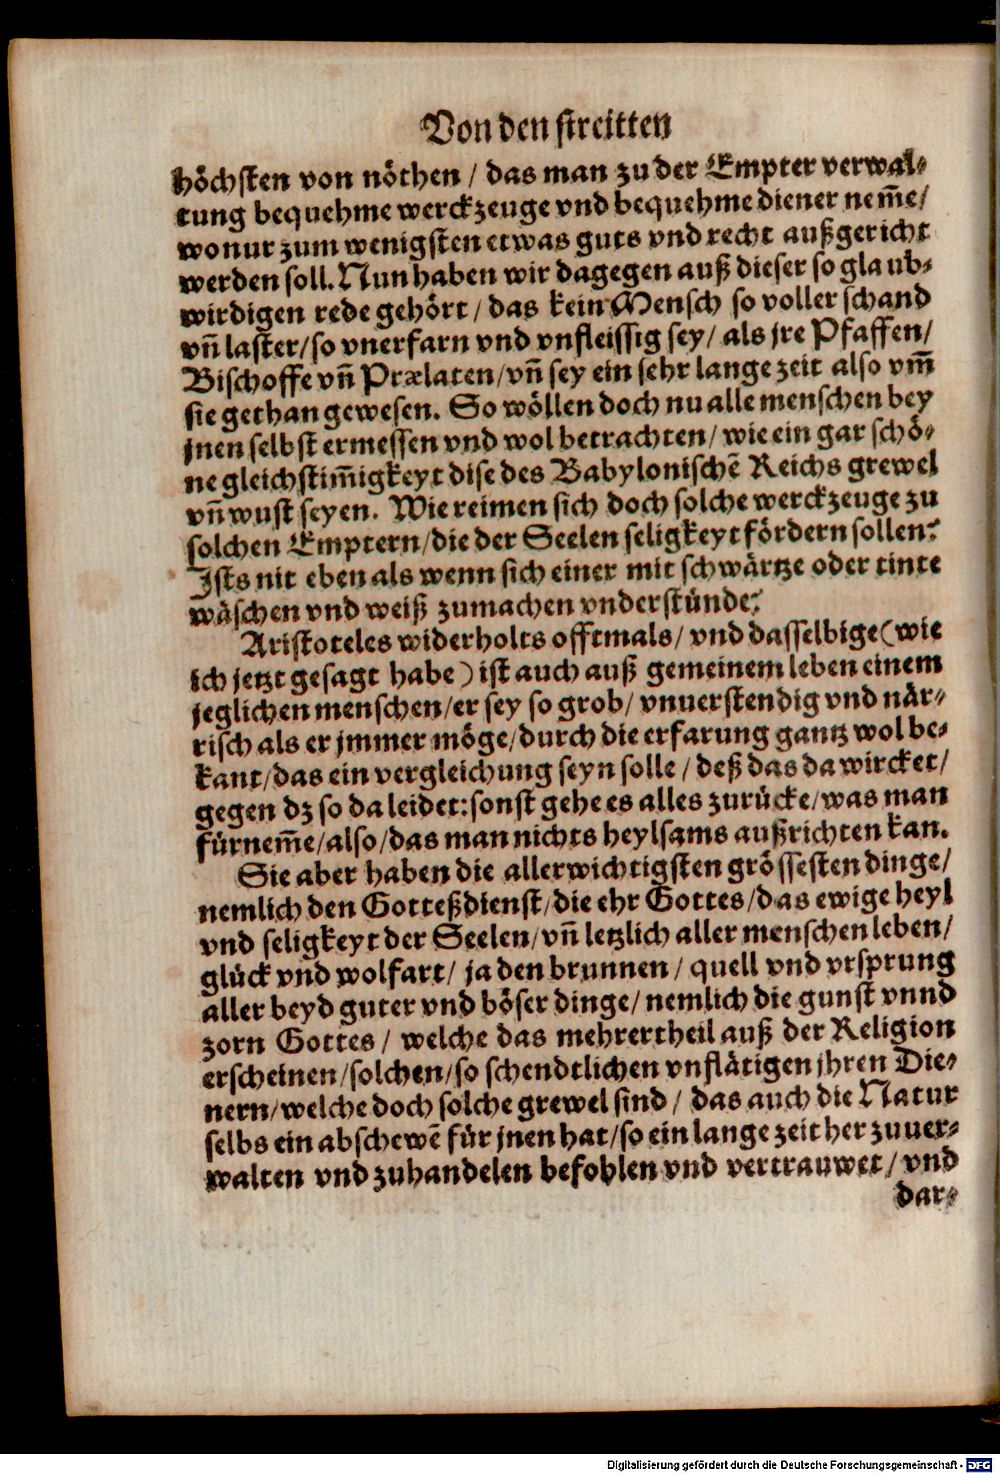 Von den streitten
höchsten von nöthen / das man zu der Empter verwal-
tung bequehme werckzeuge vnd bequehme diener nem̃e/
wo nur zum wenigsten etwas guts vnd recht außgericht
werden soll. Nun haben wir dagegen auß dieser so glaub-
wirdigen rede gehört / das kein Mensch so voller schand
vñ laster/so vnerfarn vnd vnfleissig sey/ als jre Pfaffen/
Bischoffe vñ Prælaten/vñ sey ein sehr lange zeit also vm̃
sie gethan gewesen. So wöllen doch nu alle menschen bey
jnen selbst ermessen vnd wol betrachten/ wie ein gar schö-
ne gleichstim̃igkeyt dise des Babylonischẽ Reichs grewel
vñ wust seyen. Wie reimen sich doch solche werckzeuge zu
solchen Emptern/die der Seelen seligkeyt fördern sollen?
Ists nit eben als wenn sich einer mit schwärtze oder tinte
wäschen vnd weiß zumachen vnderstünde?
Aristoteles widerholts offtmals/ vnd dasselbige (wie
ich jetzt gesagt habe) ist auch auß gemeinem leben einem
jeglichen menschen/er sey so grob/ vnuerstendig vnd när-
risch als er jmmer möge/durch die erfarung gantz wol be-
kant/das ein vergleichung seyn solle / deß das da wircket/
gegen dz so da leidet: sonst gehe es alles zurücke/was man
fürnem̃e/also/das man nichts heylsams außrichten kan.
Sie aber haben die allerwichtigsten grössesten dinge/
nemlich den Gotteßdienst/die ehr Gottes/das ewige heyl
vnd seligkeyt der Seelen/vñ letzlich aller menschen leben/
glück vnd wolfart/ ja den brunnen / quell vnd vrsprung
aller beyd guter vnd böser dinge/ nemlich die gunst vnnd
zorn Gottes / welche das mehrertheil auß der Religion
erscheinen/solchen/so schendtlichen vnflätigen jhren Die-
nern/welche doch solche grewel sind / das auch die Natur
selbs ein abschewẽ für jnen hat/so ein lange zeit her zuuer-
walten vnd zuhandelen befohlen vnd vertrauwet / vnd
dar-
Digitalisierung gefördert durch die Deutsche Forschungsgemeinschaft - DFG